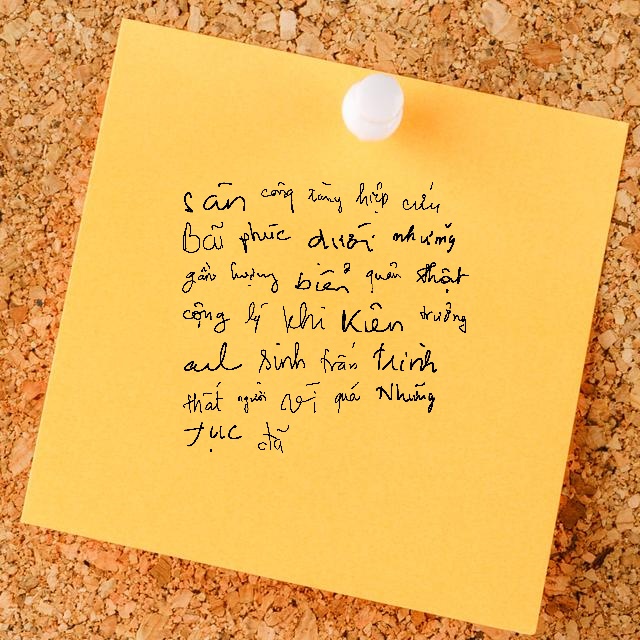 sân công tăng hiệp cứu
Bãi phúc dưới những
gần lượng biển quân thật
cộng lý khi Kiên trưởng
sinh trấn trình
thất người Vĩ quá Những
tục đã